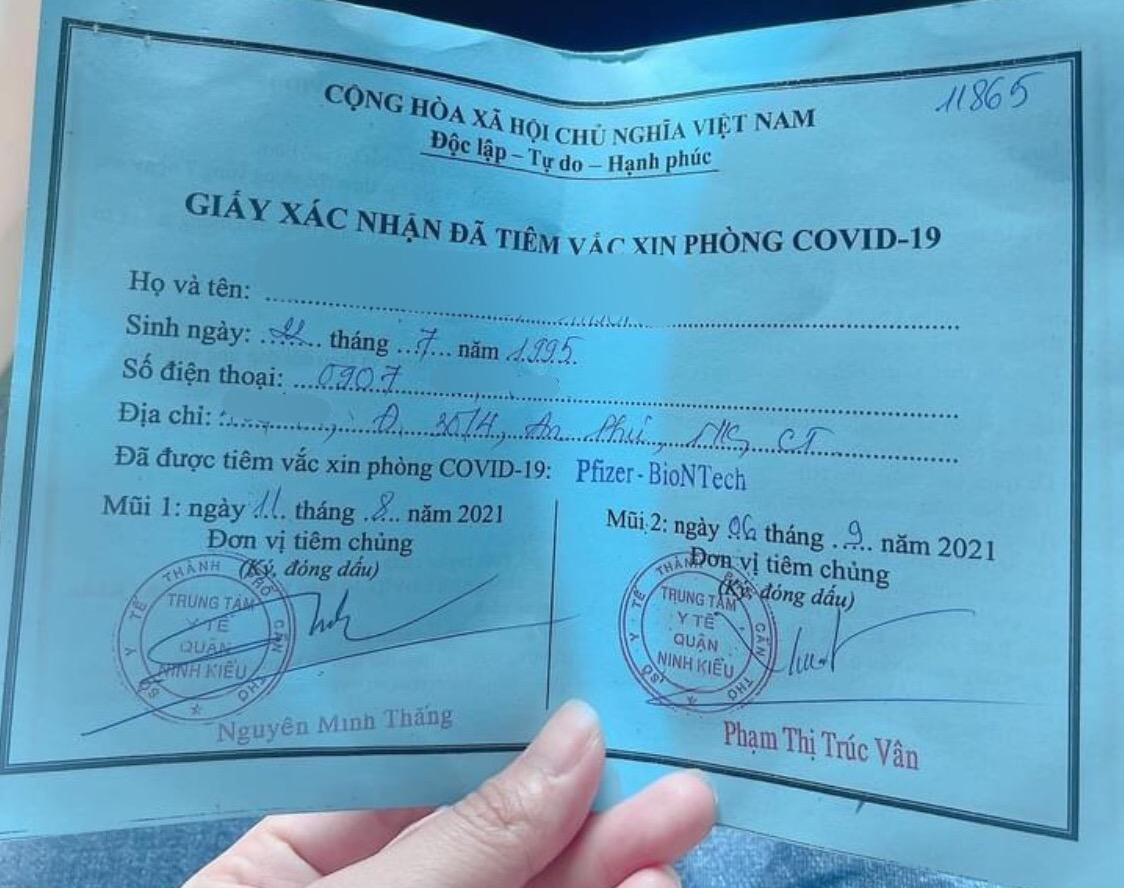 11865
CỘNG HÒA XÃ HỘI CHỦ NGHĨA VIỆT NAM
Độc lập – Tự do – Hạnh phúc
GIẤY XÁC NHẬN ĐÃ TIÊM VẮC XIN PHÒNG COVID-19
Họ và tên:
Sinh ngày: tháng 7 năm 1995
Số điện thoại: 0907
Địa chỉ: , Đ. 30/4, An Phú, NK, CT
Đã được tiêm vắc xin phòng COVID-19: Pfizer - BioNTech
Mũi 1: ngày 11 tháng 8 năm 2021
Đơn vị tiêm chủng
(Ký, đóng dấu)
SỞ Y TẾ THÀNH PHỐ CẦN THƠ
TRUNG TÂM
Y TẾ
QUẬN
NINH KIỀU
Nguyễn Minh Thắng
Mũi 2: ngày 06 tháng 9 năm 2021
Đơn vị tiêm chủng
(Ký, đóng dấu)
SỞ Y TẾ THÀNH PHỐ CẦN THƠ
TRUNG TÂM
Y TẾ
QUẬN
NINH KIỀU
Phạm Thị Trúc Vân